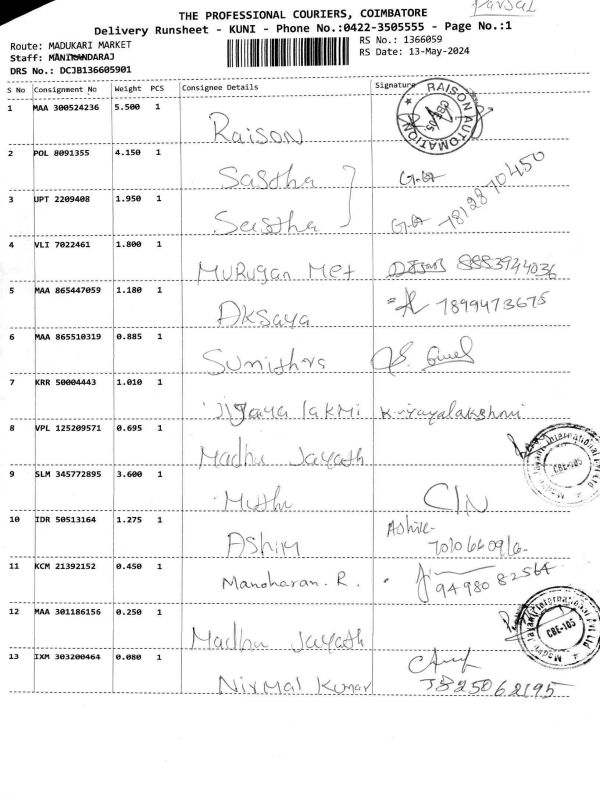 Parsal
THE PROFESSIONAL COURIERS, COIMBATORE
Delivery Runsheet - KUNI - Phone No.:0422-3505555 - Page No.:1
Route: MADUKARI MARKET
RS No.: 1366059
Staff: MANIKANDARAJ
RS Date: 13-May-2024
DRS No.: DCJB136605901
S No Consignment No Weight PCS Consignee Details Signature
1 MAA 300524236 5.500 1 Raison RAISON AUTOMATION CBE-05
2 POL 8091355 4.150 1 Sastha
3 UPT 2209408 1.950 1 Sastha 7812870450
4 VLI 7022461 1.800 1 Murugan Met 8883944036
5 MAA 865447059 1.180 1 Aksaya 7899473675
6 MAA 865510319 0.885 1
7 KRR 50004443 1.010 1 K. Vijayalakshmi
8 VPL 125209571 0.695 1 Madhu Jayath CBE-105
9 SLM 345772895 3.600 1 Muthu
10 IDR 50513164 1.275 1 Ashim
11 KCM 21392152 0.450 1 Manoharan. R. 94980 82564
12 MAA 301186156 0.250 1 Madhu Jayath CBE-105
13 IXM 303200464 0.080 1 Nirmal Kumar